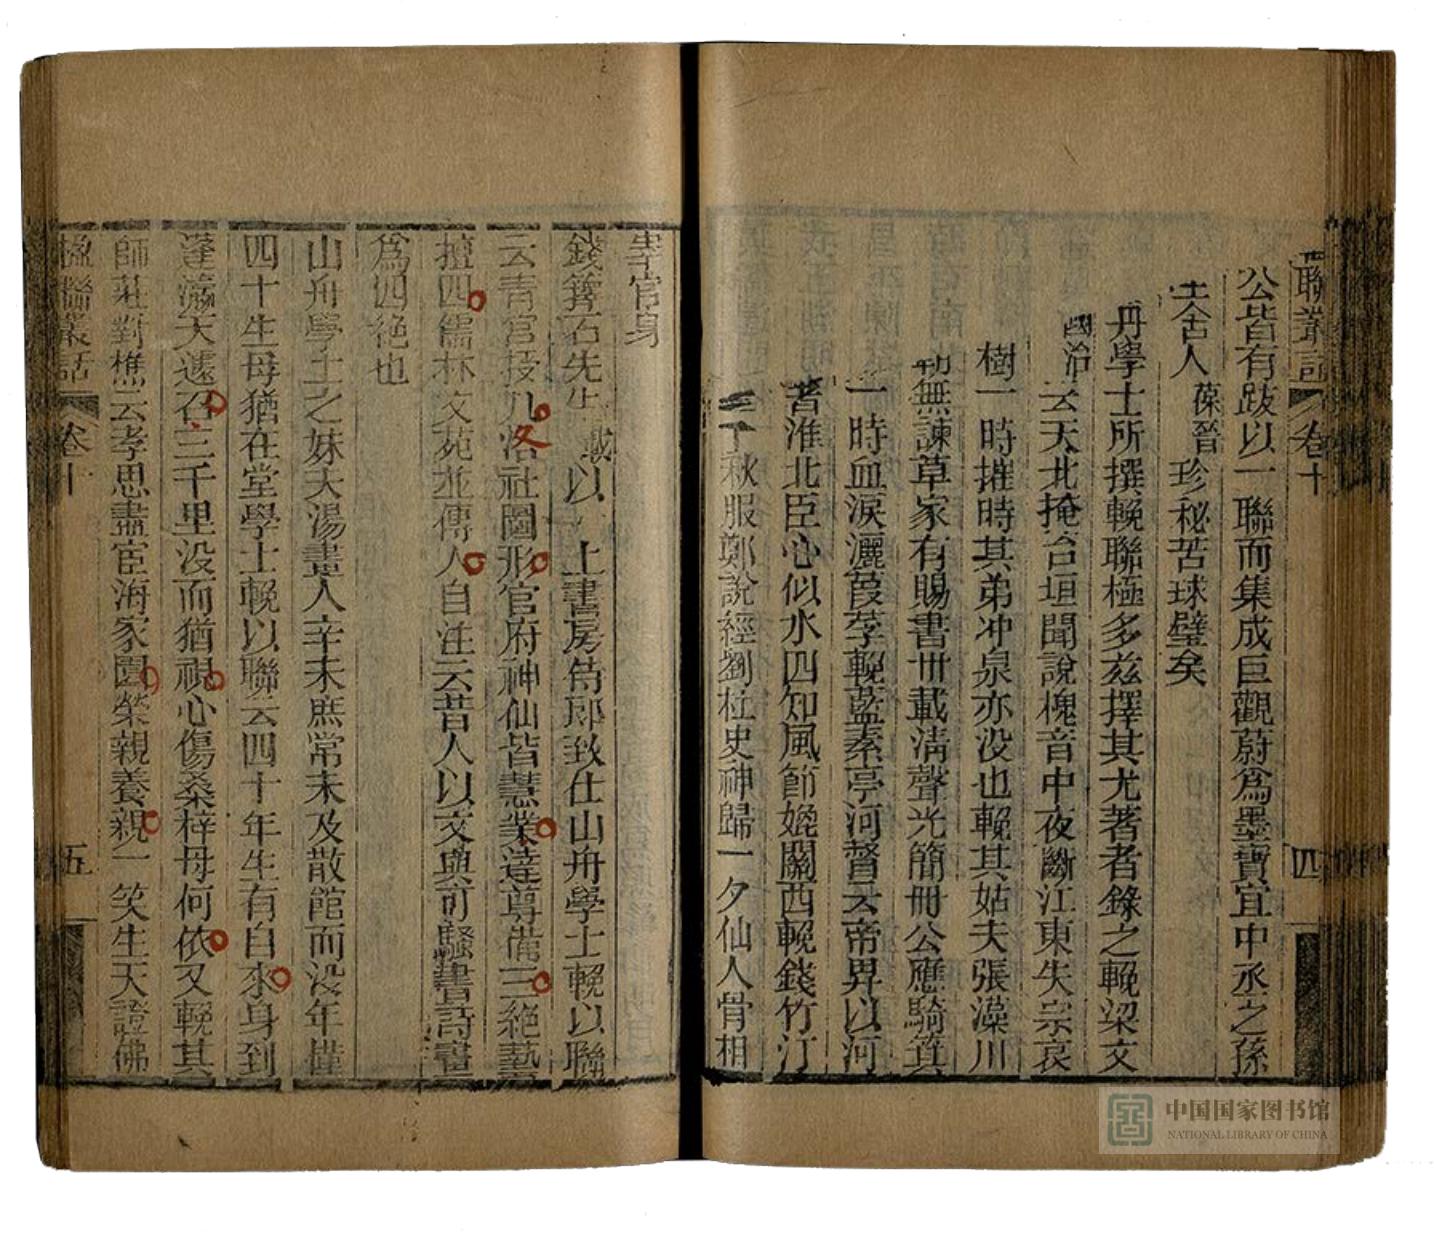 聯叢話 卷十 四
公皆有跋以一聯而集成巨觀蔚爲墨寶宜中丞之孫
舍人葆晉珍秘苦球璧矣
丹學士所撰輓聯極多兹擇其尤著者錄之輓梁文
國治云天北掩台垣聞說槐音中夜斷江東失宗哀
樹一時摧時其弟冲泉亦没也輓其姑夫張藻川
無諫草家有賜書卌載淸聲光簡冊公應騎箕
一時血淚灑葭莩輓藍素亭河督云帝畀以河
者淮北臣心似水四知風節媲關西輓錢竹汀
千秋服鄭說經劉杜史神歸一夕仙人骨相
宰官身
錢籜石先生載以上書房侍郎致仕山舟學士輓以聯
云青宮授几洛社圖形官府神仙皆慧業達尊備三絕藝
擅四儒林文苑並傳人自注云昔人以文與可騷書詩畫
爲四絶也
山舟學士之妹夫湯畫人辛未庶常未及散館而没年僅
四十生母猶在堂學士輓以聯云四十年生有自來身到
蓬瀛天遽召三千里没而猶視心傷桑梓母何依又輓其
師莊對樵云孝思盡宦海家園榮親養親一笑生天證佛
楹聯叢話 卷十 五
中国国家图书馆
NATIONAL LIBRARY OF CHINA